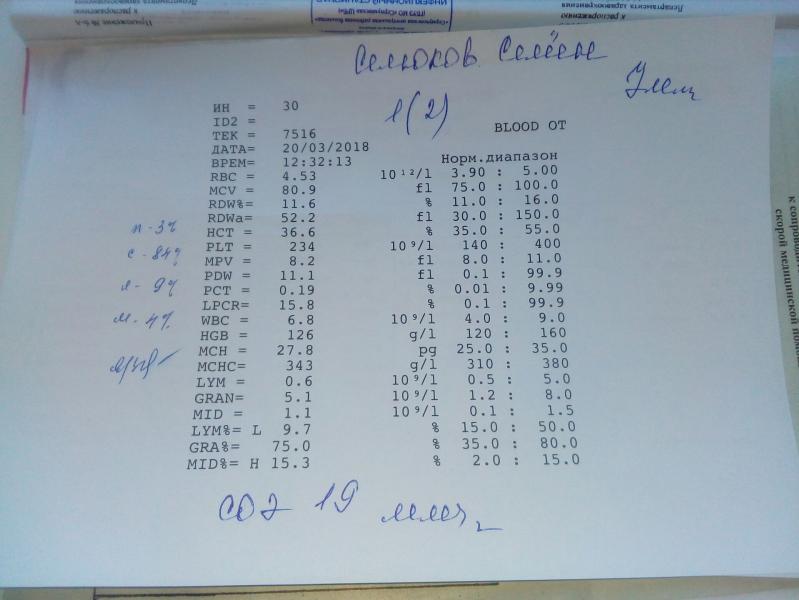 Селюков Семён
1(2)
ИН = 30
ID2 =
ТЕК = 7516
BLOOD OT
ДАТА= 20/03/2018
ВРЕМ= 12:32:13 Норм.диапазон
RBC = 4.53 10¹²/l 3.90 : 5.00
MCV = 80.9 fl 75.0 : 100.0
RDW%= 11.6 % 11.0 : 16.0
RDWa= 52.2 fl 30.0 : 150.0
HCT = 36.6 % 35.0 : 55.0
PLT = 234 10⁹/l 140 : 400
MPV = 8.2 fl 8.0 : 11.0
PDW = 11.1 fl 0.1 : 99.9
PCT = 0.19 % 0.01 : 9.99
LPCR= 15.8 % 0.1 : 99.9
WBC = 6.8 10⁹/l 4.0 : 9.0
HGB = 126 g/l 120 : 160
MCH = 27.8 pg 25.0 : 35.0
MCHC= 343 g/l 310 : 380
LYM = 0.6 10⁹/l 0.5 : 5.0
GRAN= 5.1 10⁹/l 1.2 : 8.0
MID = 1.1 10⁹/l 0.1 : 1.5
LYM%= L 9.7 % 15.0 : 50.0
GRA%= 75.0 % 35.0 : 80.0
MID%= H 15.3 % 2.0 : 15.0
п - 3%
с - 84%
л - 9%
м - 4%
СОЭ 19 мм/ч
к распоряжению
Департамента здравоохранения
Приложение № 6-А
к распоряжению
Департамента здравоохранения
к сопровод
скорой медицинской помо